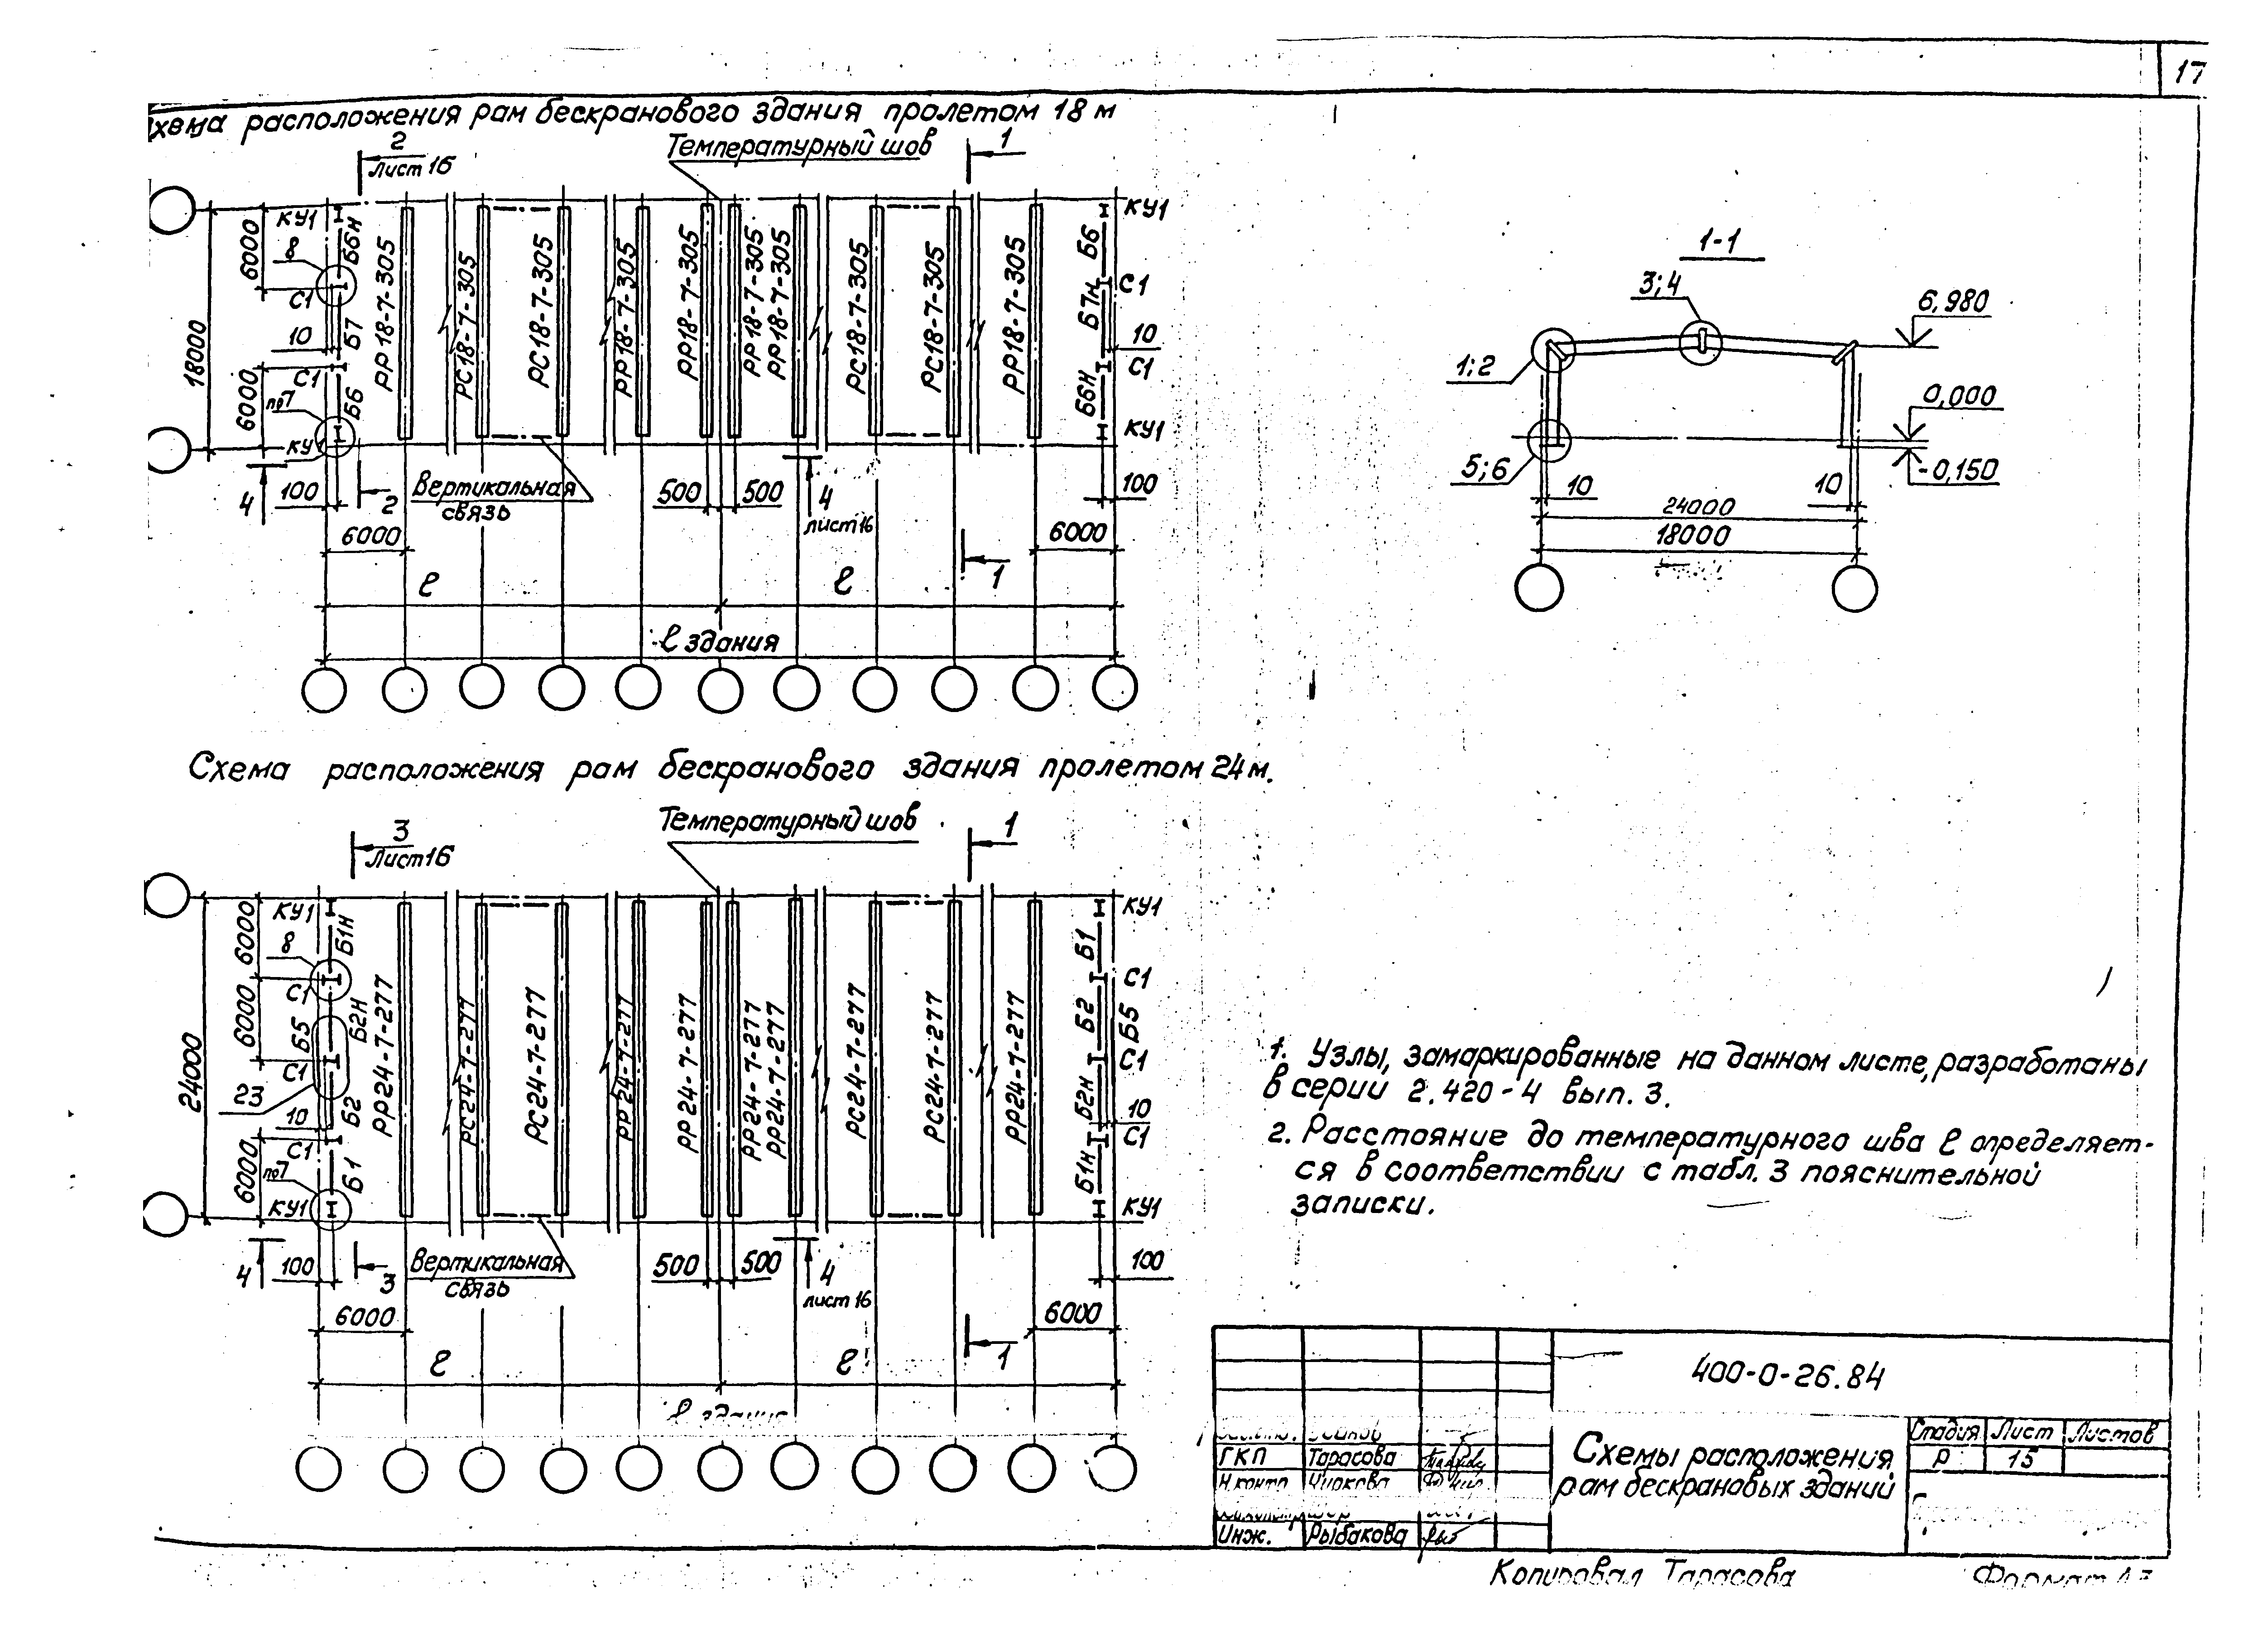 17
хема расположения рам бескранового здания пролетом 18 м
2
Лист 16
Температурный шов
1
КУ1
8
6000
С1
10
Б6Н
Б7
18000
С1
6000
по7
Б6
КУ1
РР18-7-305
РС18-7-305
РС18-7-305
РР18-7-305
РР18-7-305
РР18-7-305
РР18-7-305
РС18-7-305
РС18-7-305
РР18-7-305
КУ1
Б6
С1
Б7Н
10
С1
Б6Н
КУ1
4
100
2
Вертикальная
связь
500
500
4
лист 16
100
6000
6000
1
ℓ
ℓ
ℓ здания
1-1
3;4
6,980
1;2
0,000
5;6
-0,150
10
10
24000
18000
Схема расположения рам бескранового здания пролетом 24 м.
3
Лист 16
Температурный шов
1
КУ1
8
6000
С1
Б1Н
6000
Б5
Б2Н
24000
С1
23
10
Б2
С1
6000
по7
Б1
КУ1
РР24-7-277
РС24-7-277
РС24-7-277
РР24-7-277
РР24-7-277
РР24-7-277
РР24-7-277
РС24-7-277
РС24-7-277
РР24-7-277
КУ1
Б1
С1
Б2
Б5
С1
Б2Н
10
С1
Б1Н
КУ1
4
100
3
Вертикальная
связь
500
500
4
лист 16
100
6000
6000
1
ℓ
ℓ
ℓ здания
1. Узлы, замаркированные на данном листе, разработаны
в серии 2.420-4 вып. 3.
2. Расстояние до температурного шва ℓ определяет-
ся в соответствии с табл. 3 пояснительной
записки.
400-0-26.84
ГКП Тарасова
Н.контр Чиркова
Инж. Рыбакова
Схемы расположения
рам бескрановых зданий
Стадия Лист Листов
Р 15
Копировал Тарасова
Формат А3